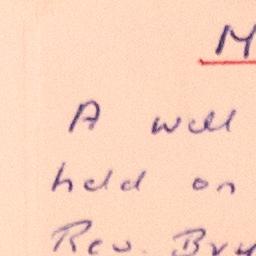 M
A well
held on
Rev. Bry